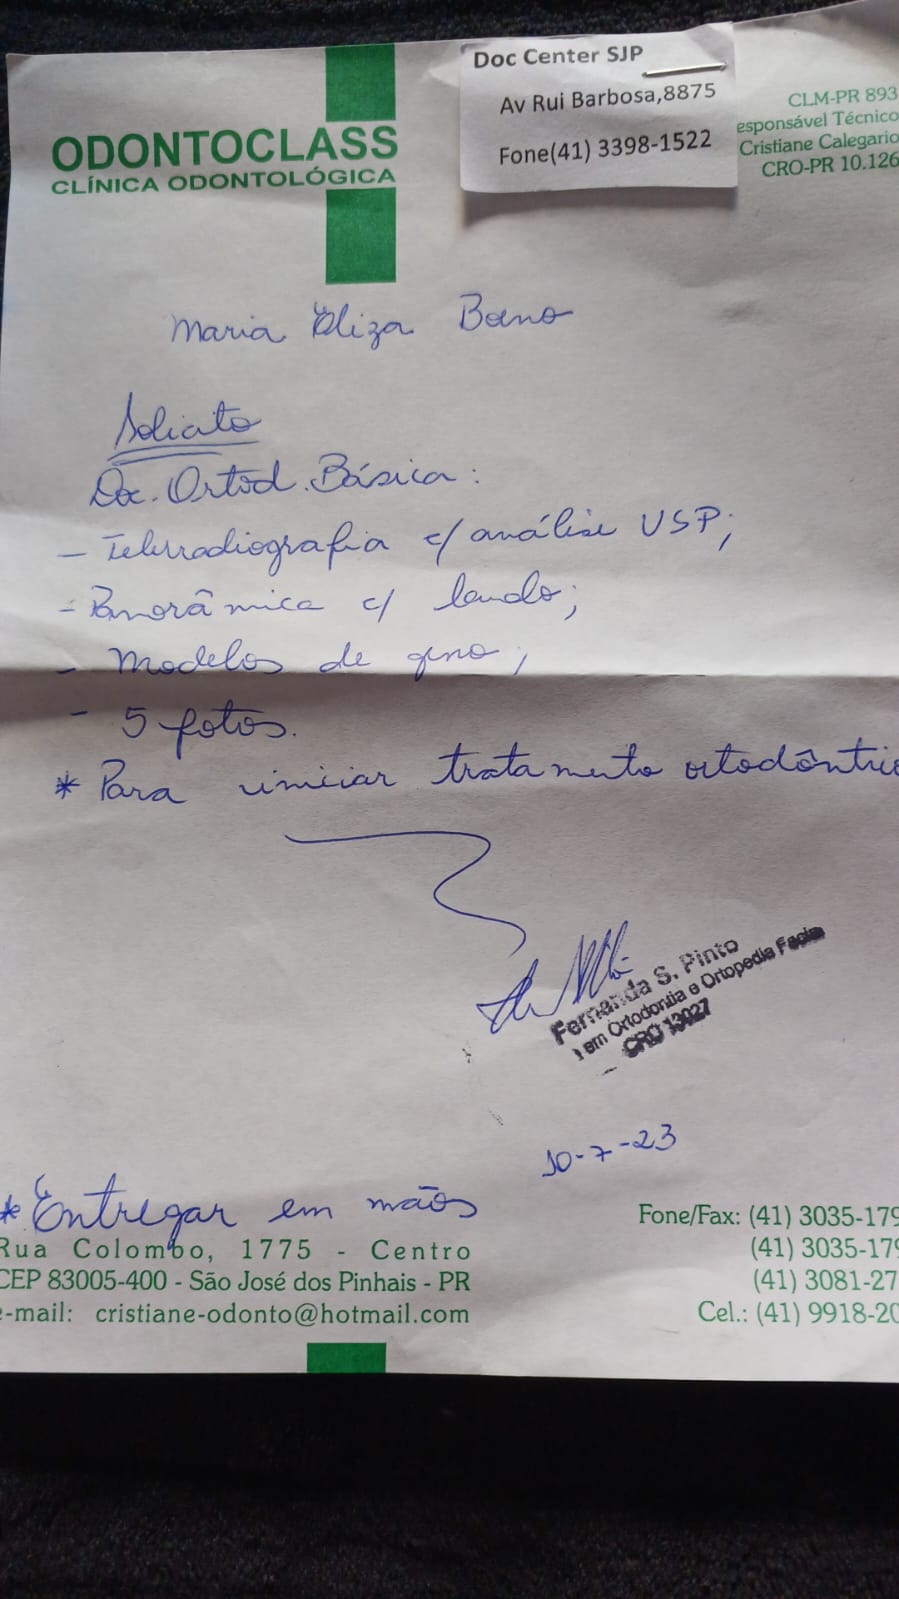 Doc Center SJP
Av Rui Barbosa,8875
Fone(41) 3398-1522
CLM-PR 893
esponsável Técnico
Cristiane Calegario
CRO-PR 10.126
ODONTOCLASS
CLÍNICA ODONTOLÓGICA
Maria Eliza
Solicito
Doc. Ortod. Básica:
- Telerradiografia c/ análise USP;
- Panorâmica c/ laudo;
- Modelos de geno;
- 5 fotos.
* Para iniciar tratamento ortodôntic
Fernanda S. Pinto
em Ortodontia e Ortopedia Facial
CRO 13027
10-7-23
* Entregar em mãos
Rua Colombo, 1775 - Centro
CEP 83005-400 - São José dos Pinhais - PR
e-mail: cristiane-odonto@hotmail.com
Fone/Fax: (41) 3035-179
(41) 3035-179
(41) 3081-27
Cel.: (41) 9918-20